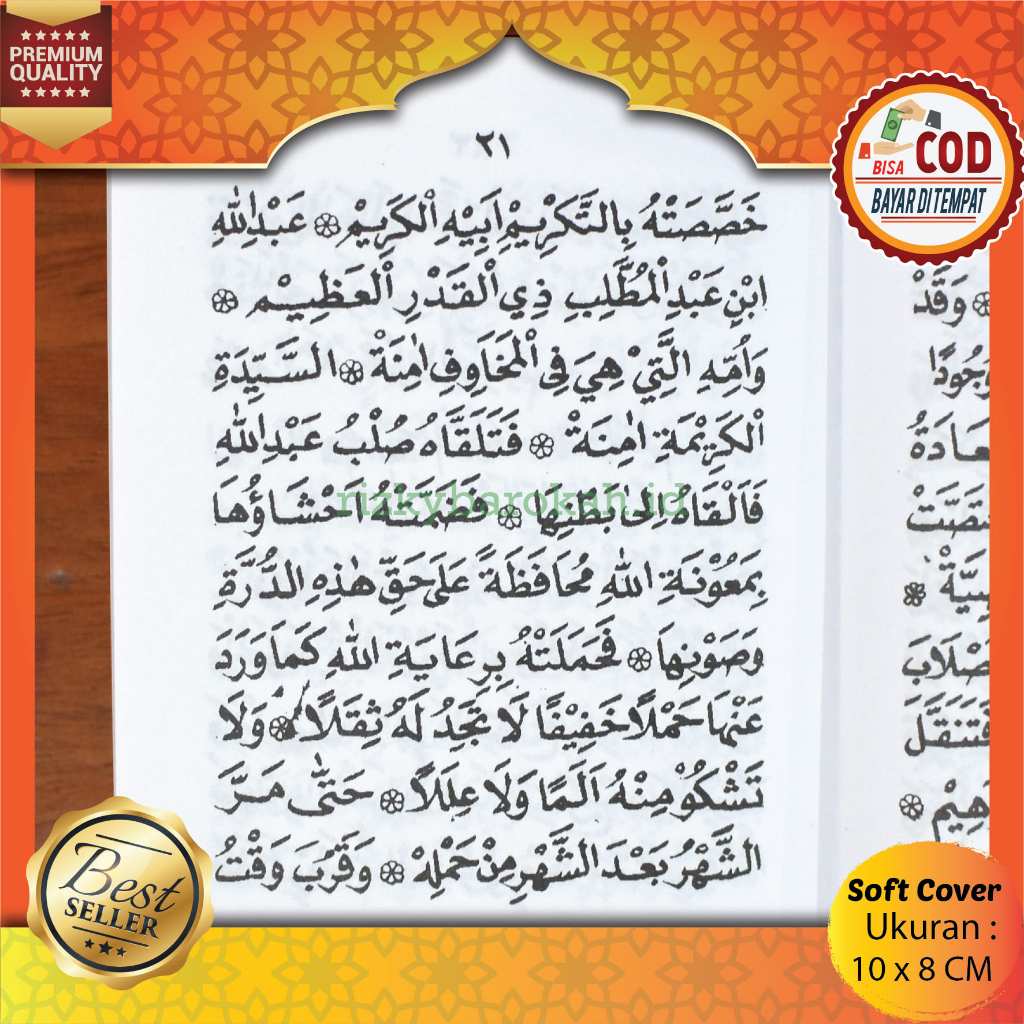 PREMIUM
QUALITY
BISA COD
BAYAR DI TEMPAT
٢١
خَصَّصَتْهُ بِالتَّكْرِيْمِ اَبِيْهِ الْكَرِيْمِ ۞ عَبْدِ اللّٰهِ
ابْنِ عَبْدِ الْمُطَّلِبِ ذِي الْقَدْرِ الْعَظِيْمِ ۞
وَاُمِّهِ الَّتِيْ هِيَ فِى الْمَخَاوِفِ اٰمِنَةْ ۞ السَّيِّدَةِ
الْكَرِيْمَةِ اٰمِنَةْ ۞ فَتَلَقَّاهُ صُلْبُ عَبْدِ اللّٰهِ
فَاَلْقَاهُ اِلٰى بَطْنِهَا ۞ فَضَمَّتْهُ اَحْشَاؤُهَا
بِمَعُوْنَةِ اللّٰهِ مُحَافَظَةً عَلَى حَقِّ هٰذِهِ الدُّرَّةِ
وَصَوْنِهَا ۞ فَحَمَلَتْهُ بِرِعَايَةِ اللّٰهِ كَمَا وَرَدَ
عَنْهَا حَمْلًا خَفِيْفًا لَا تَجِدُ لَهُ ثِقَلًا ۞ وَلَا
تَشْكُوْ مِنْهُ اَلَمًا وَلَا عِلَلًا ۞ حَتّٰى مَرَّ
الشَّهْرُ بَعْدَ الشَّهْرِ مِنْ حَمْلِهْ ۞ وَقَرُبَ وَقْتُ
rizkybarokah.id
۞ وَقَدْ
وَجُودًا
Best
SELLER
Soft Cover
Ukuran :
10 x 8 CM